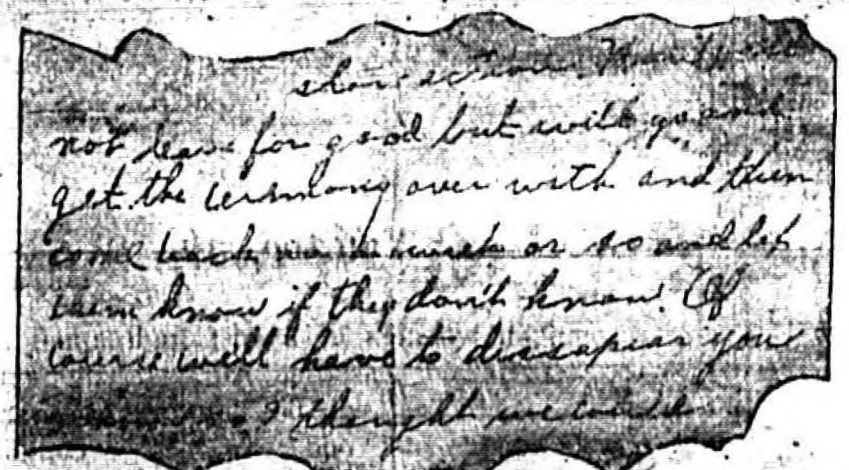 not leave for good but will go and
get the ceremony over with and then
come back in a week or so and let
them know if they don't know. Of
course we'll have to dissapear you
I thought we could